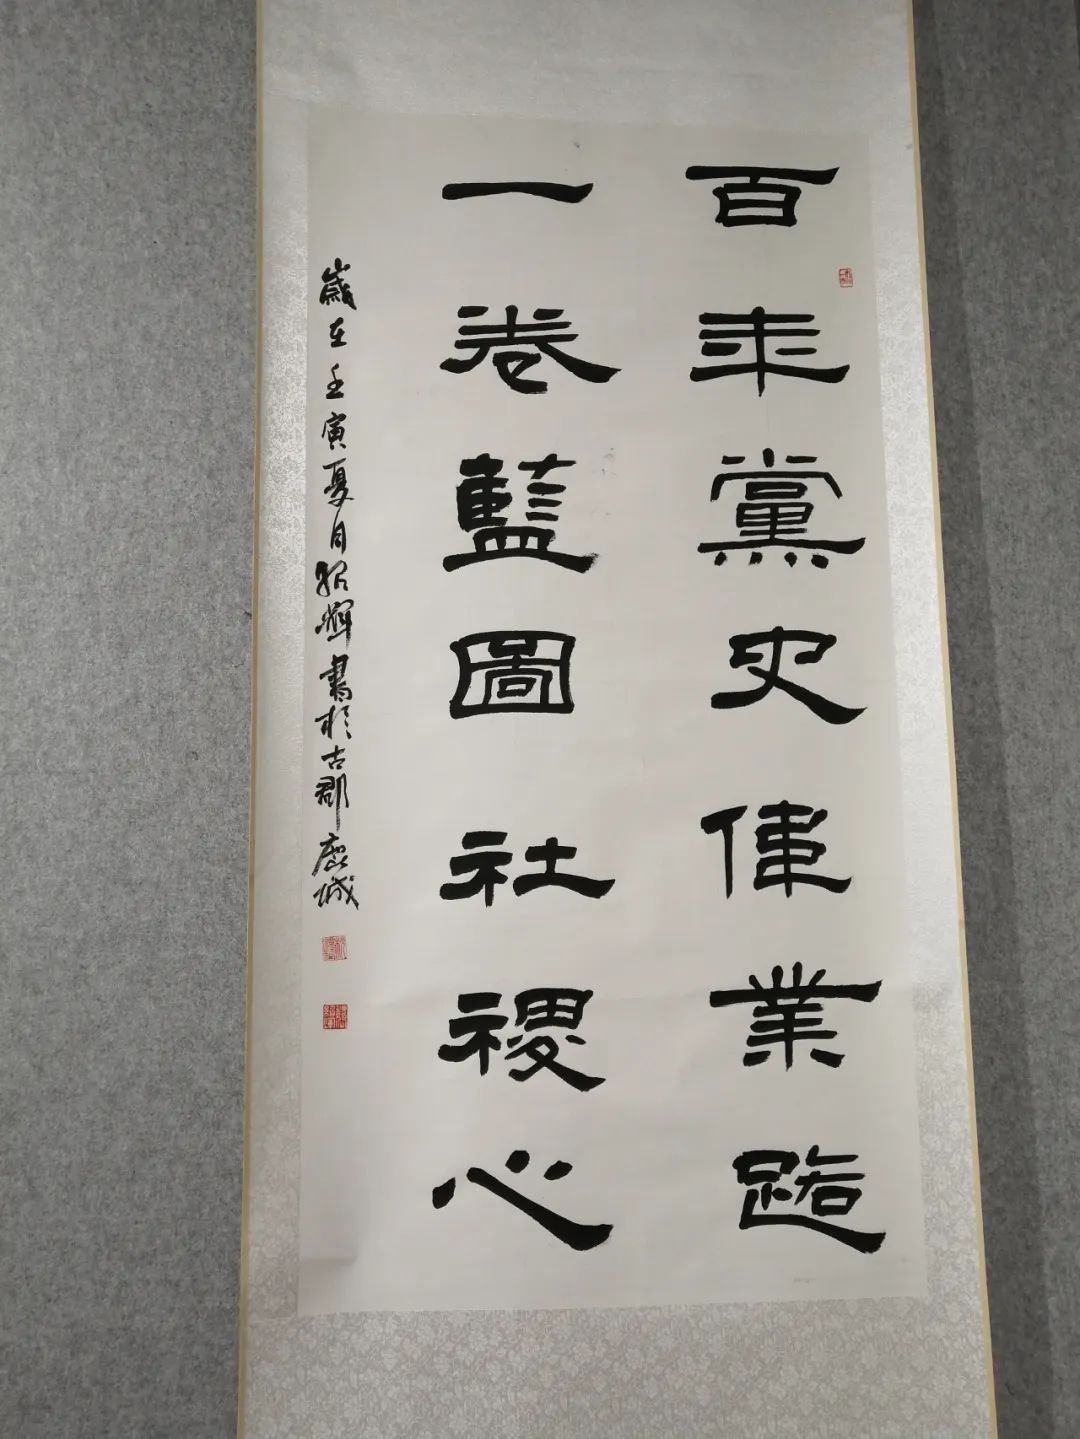 百年黨史偉業路
一卷藍圖社稷心
歲在壬寅夏月輝書於古郡鹿城